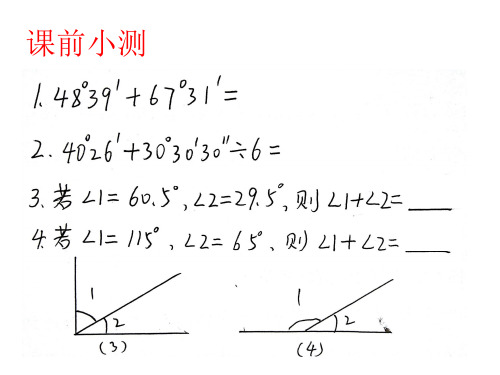 课前小测
1. 48°39′+67°31′=
2. 40°26′+30°30′30″÷6=
3. 若∠1=60.5°,∠2=29.5°,则∠1+∠2=____
4. 若∠1=115°,∠2=65°、则∠1+∠2=____
1
2
(3)
1
2
(4)